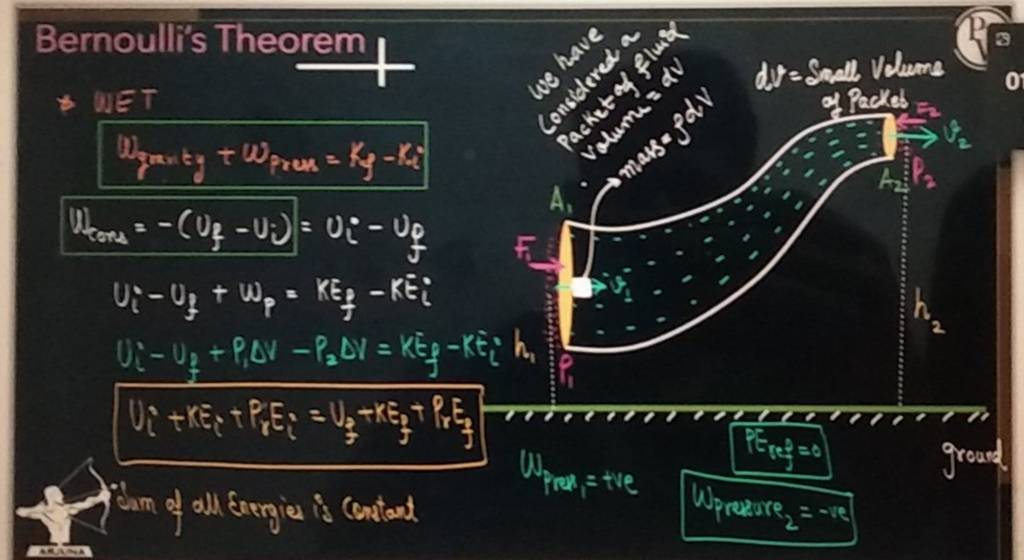 Bernoulli's Theorem
* WET
Wgravity + Wpress = Kf - Ki
Wcons = -(Uf - Ui) = Ui - Uf
Ui - Uf + Wp = KEf - KEi
Ui - Uf + P₁ΔV - P₂ΔV = KEf - KEi
Ui + KEi + PrEi = Uf + KEf + PrEf
Sum of all Energies is Constant
ARJUNA
We have
Considered a
Packet of fluid
Volume = dV
mass = ρdV
dV = Small Volume
of Packet
A₁
F₁
v₁
h₁
P₁
F₂
v₂
A₂
P₂
h₂
ground
PEref = 0
Wpress₁ = +ve
Wpressure₂ = -ve